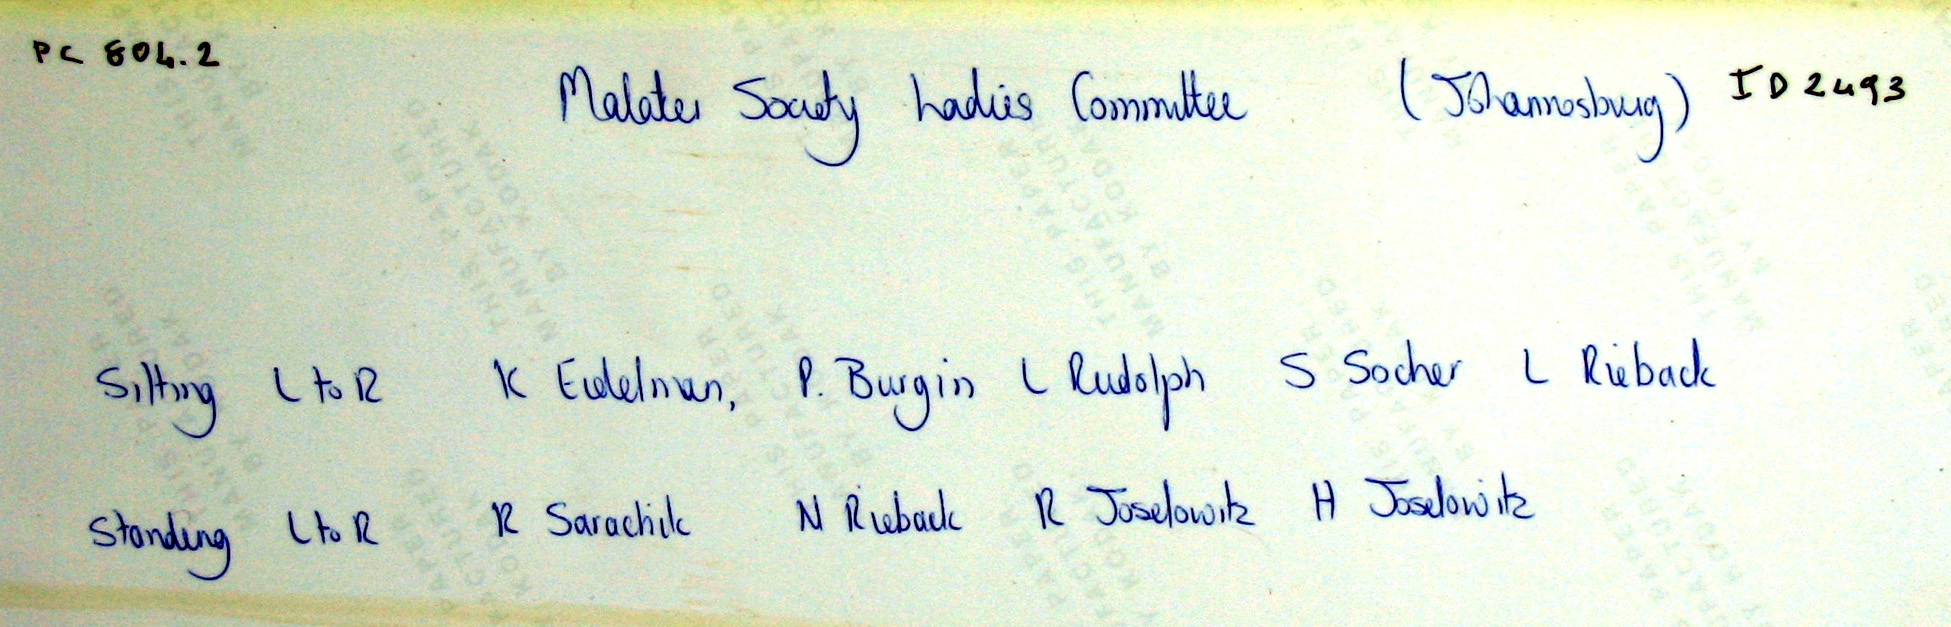 PC 804.2
Malater Society Ladies Committee (Johannesburg) ID 2493
Sitting L to R K Eidelman, P. Burgin L Rudolph S Socher L Rieback
Standing L to R R Sarachik N Rieback R Joselowitz H Joselowitz
THIS PAPER MANUFACTURED BY KODAK